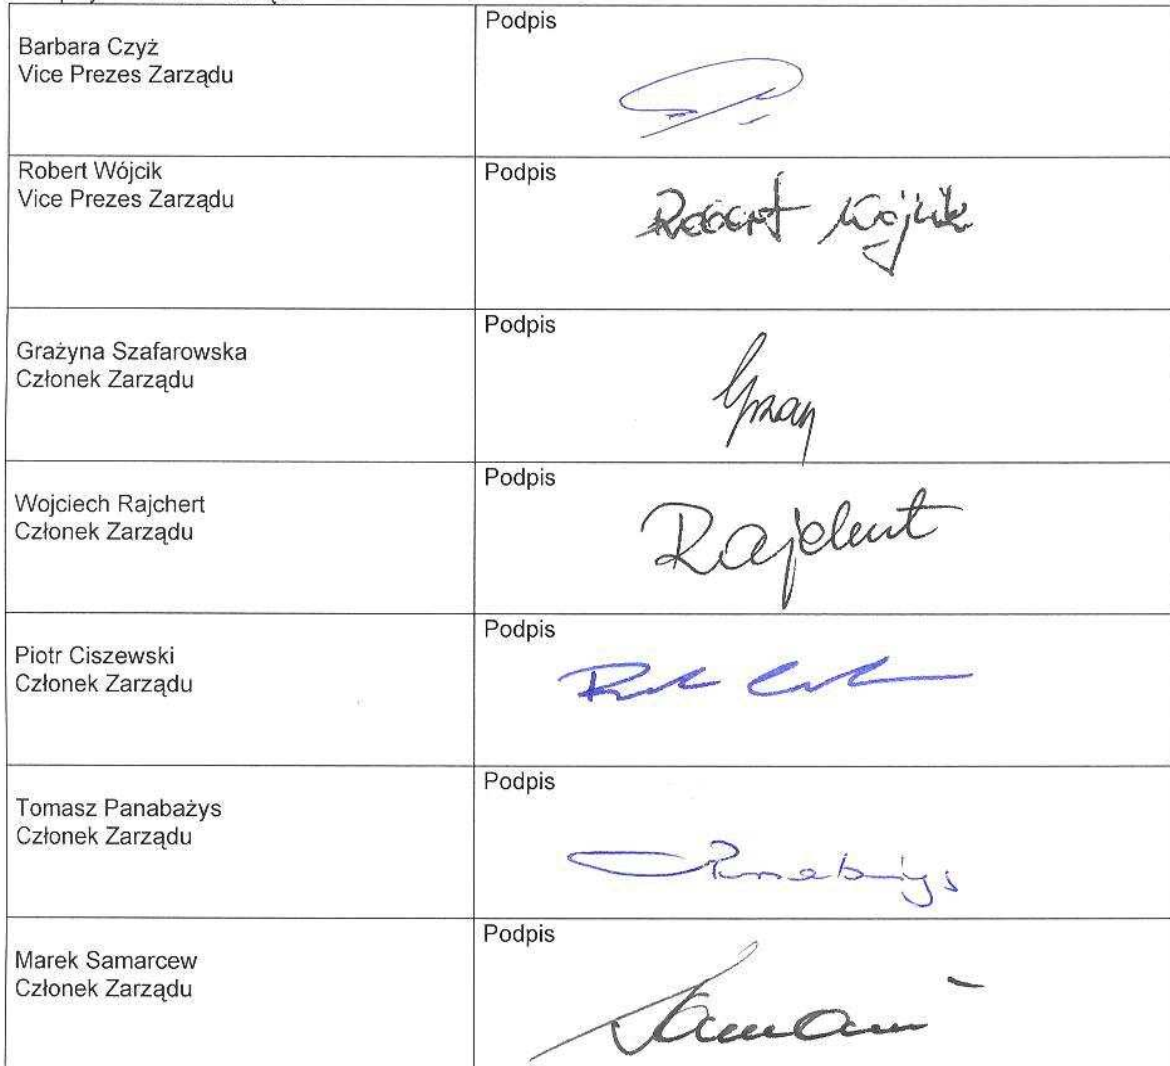 Barbara Czyż
Vice Prezes Zarządu
Podpis
Robert Wójcik
Vice Prezes Zarządu
Podpis
Robert Wójcik
Grażyna Szafarowska
Członek Zarządu
Podpis
Wojciech Rajchert
Członek Zarządu
Podpis
Rajchert
Piotr Ciszewski
Członek Zarządu
Podpis
Tomasz Panabażys
Członek Zarządu
Podpis
Marek Samarcew
Członek Zarządu
Podpis